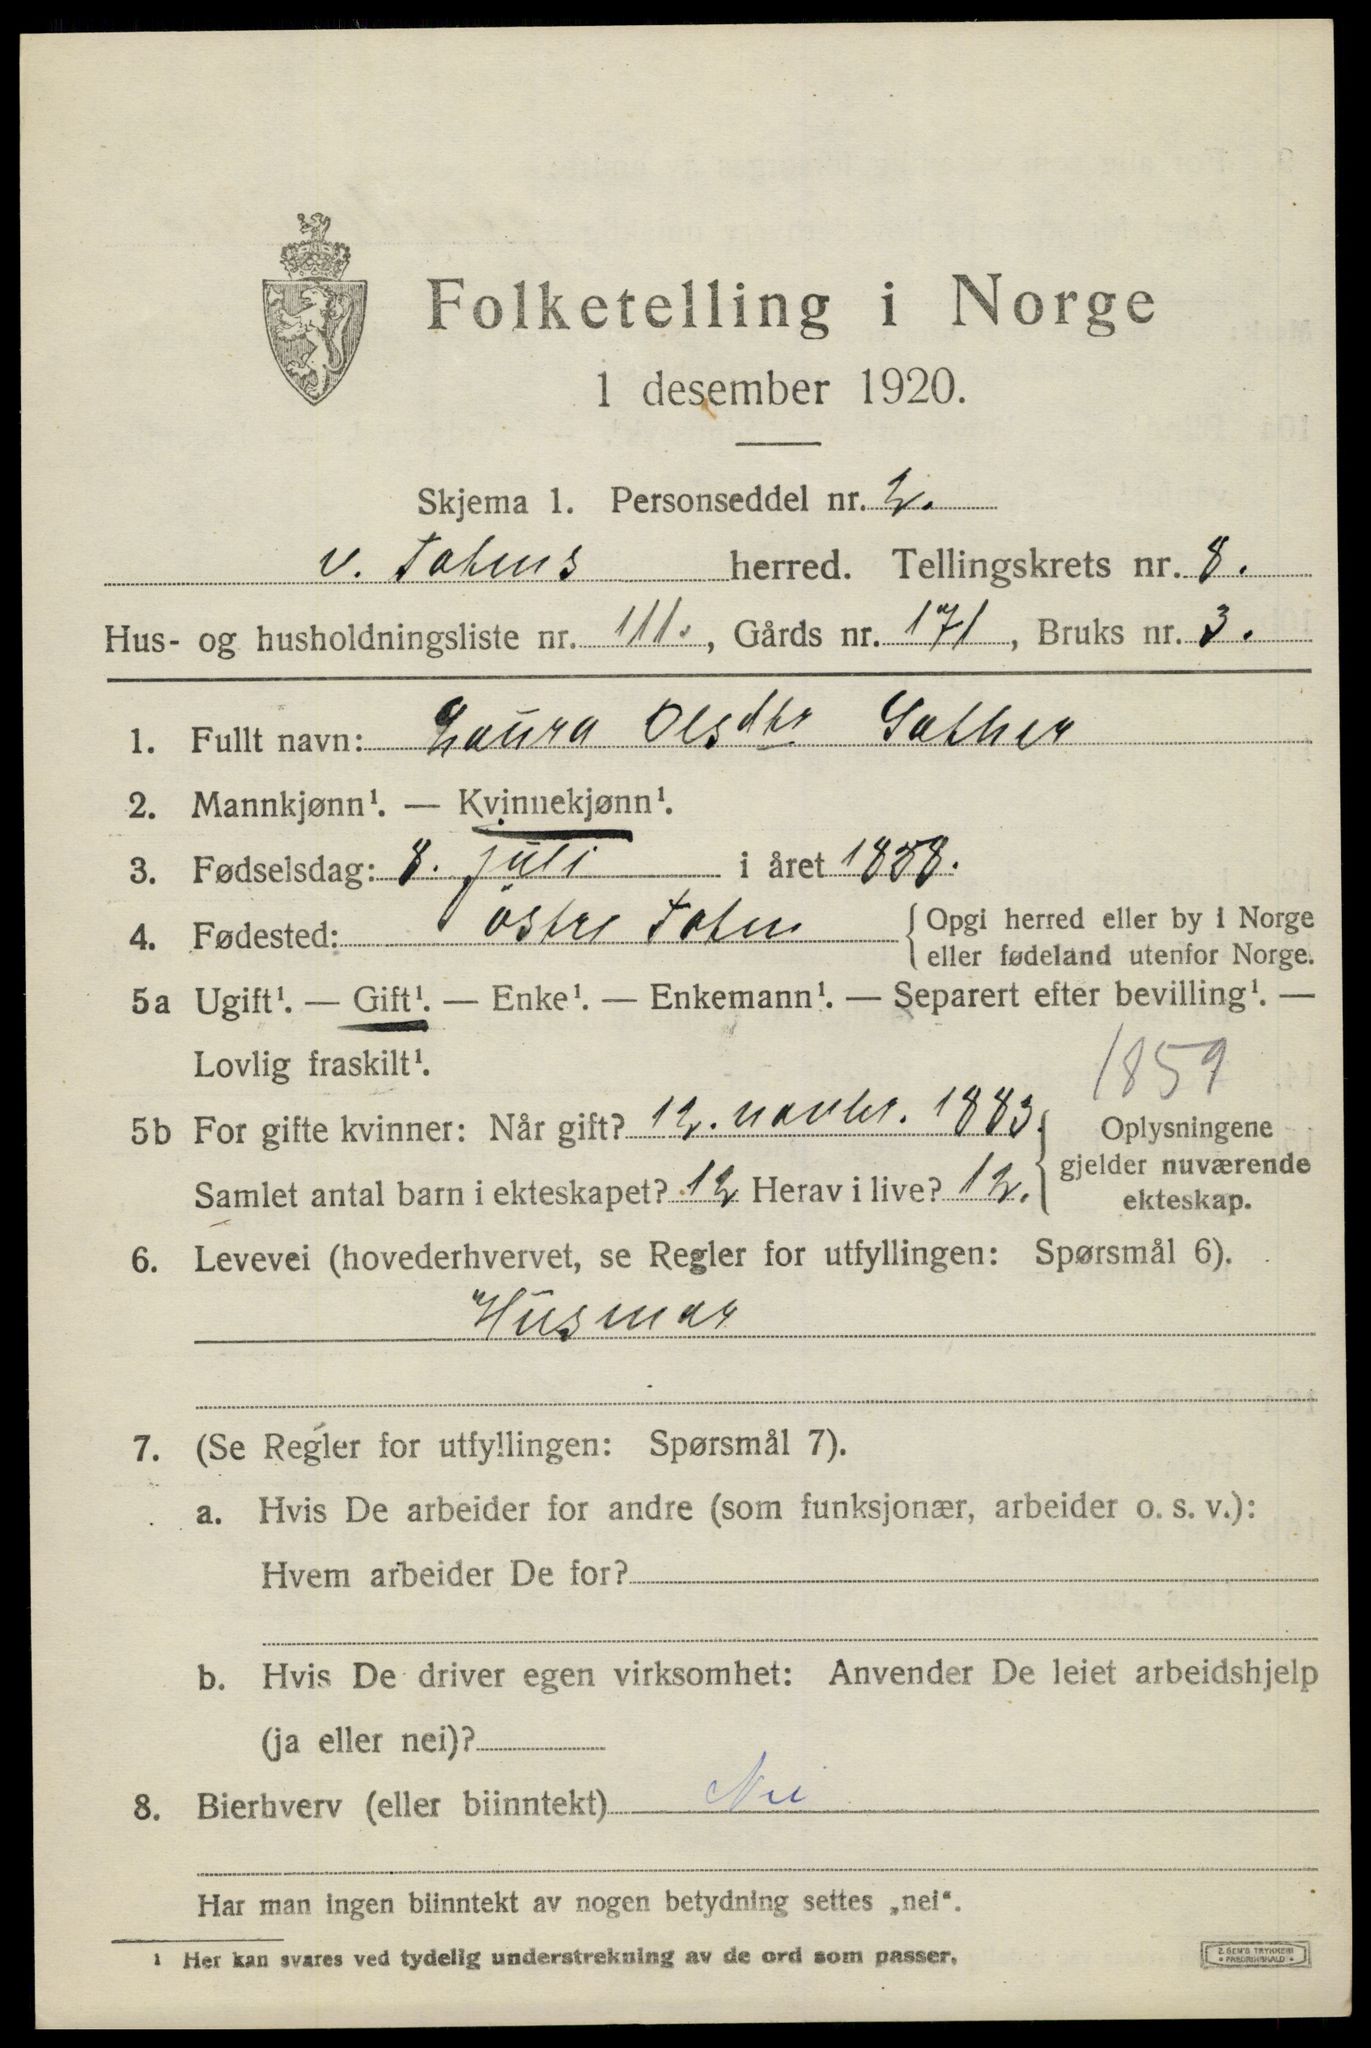 Folketelling i Norge
1 desember 1920.
Skjema 1. Personseddel nr. 2.
v. Totens herred. Tellingskrets nr. 8.
Hus- og husholdningsliste nr. 111., Gårds nr. 171, Bruks nr. 3.
1. Fullt navn: Laura Olsdtr Sether
2. Mannkjønn¹. — Kvinnekjønn¹.
3. Fødselsdag: 8. juli i året 1858.
4. Fødested: östre Toten { Opgi herred eller by i Norge
eller fødeland utenfor Norge.
5a Ugift¹. — Gift¹. — Enke¹. — Enkemann¹. — Separert efter bevilling¹. —
Lovlig fraskilt¹.
1859
5b For gifte kvinner: Når gift? 12. novbr. 1883.
Samlet antal barn i ekteskapet? 12 Herav i live? 12.
Oplysningene
gjelder nuværende
ekteskap.
6. Levevei (hovederhvervet, se Regler for utfyllingen: Spørsmål 6).
Husmor
7. (Se Regler for utfyllingen: Spørsmål 7).
a. Hvis De arbeider for andre (som funksjonær, arbeider o. s. v.):
Hvem arbeider De for?
b. Hvis De driver egen virksomhet: Anvender De leiet arbeidshjelp
(ja eller nei)?
8. Bierhverv (eller biinntekt) Nei
Har man ingen biinntekt av nogen betydning settes „nei“.
¹ Her kan svares ved tydelig understrekning av de ord som passer.
E. SEM'S TRYKKERI
• FREDRIKSHALD •